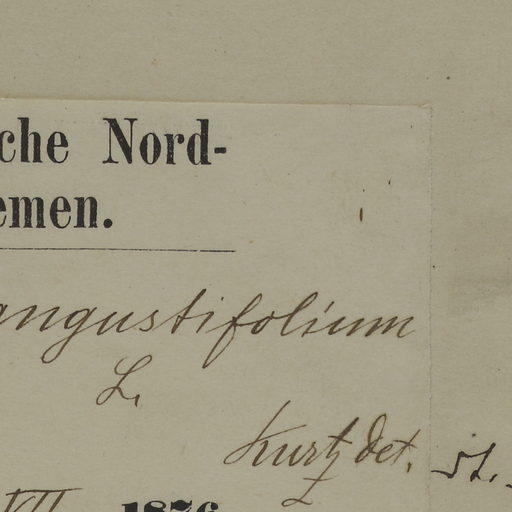 che Nord-
emen.
angustifolium
L.
Kurtz det. St.
VII 1876